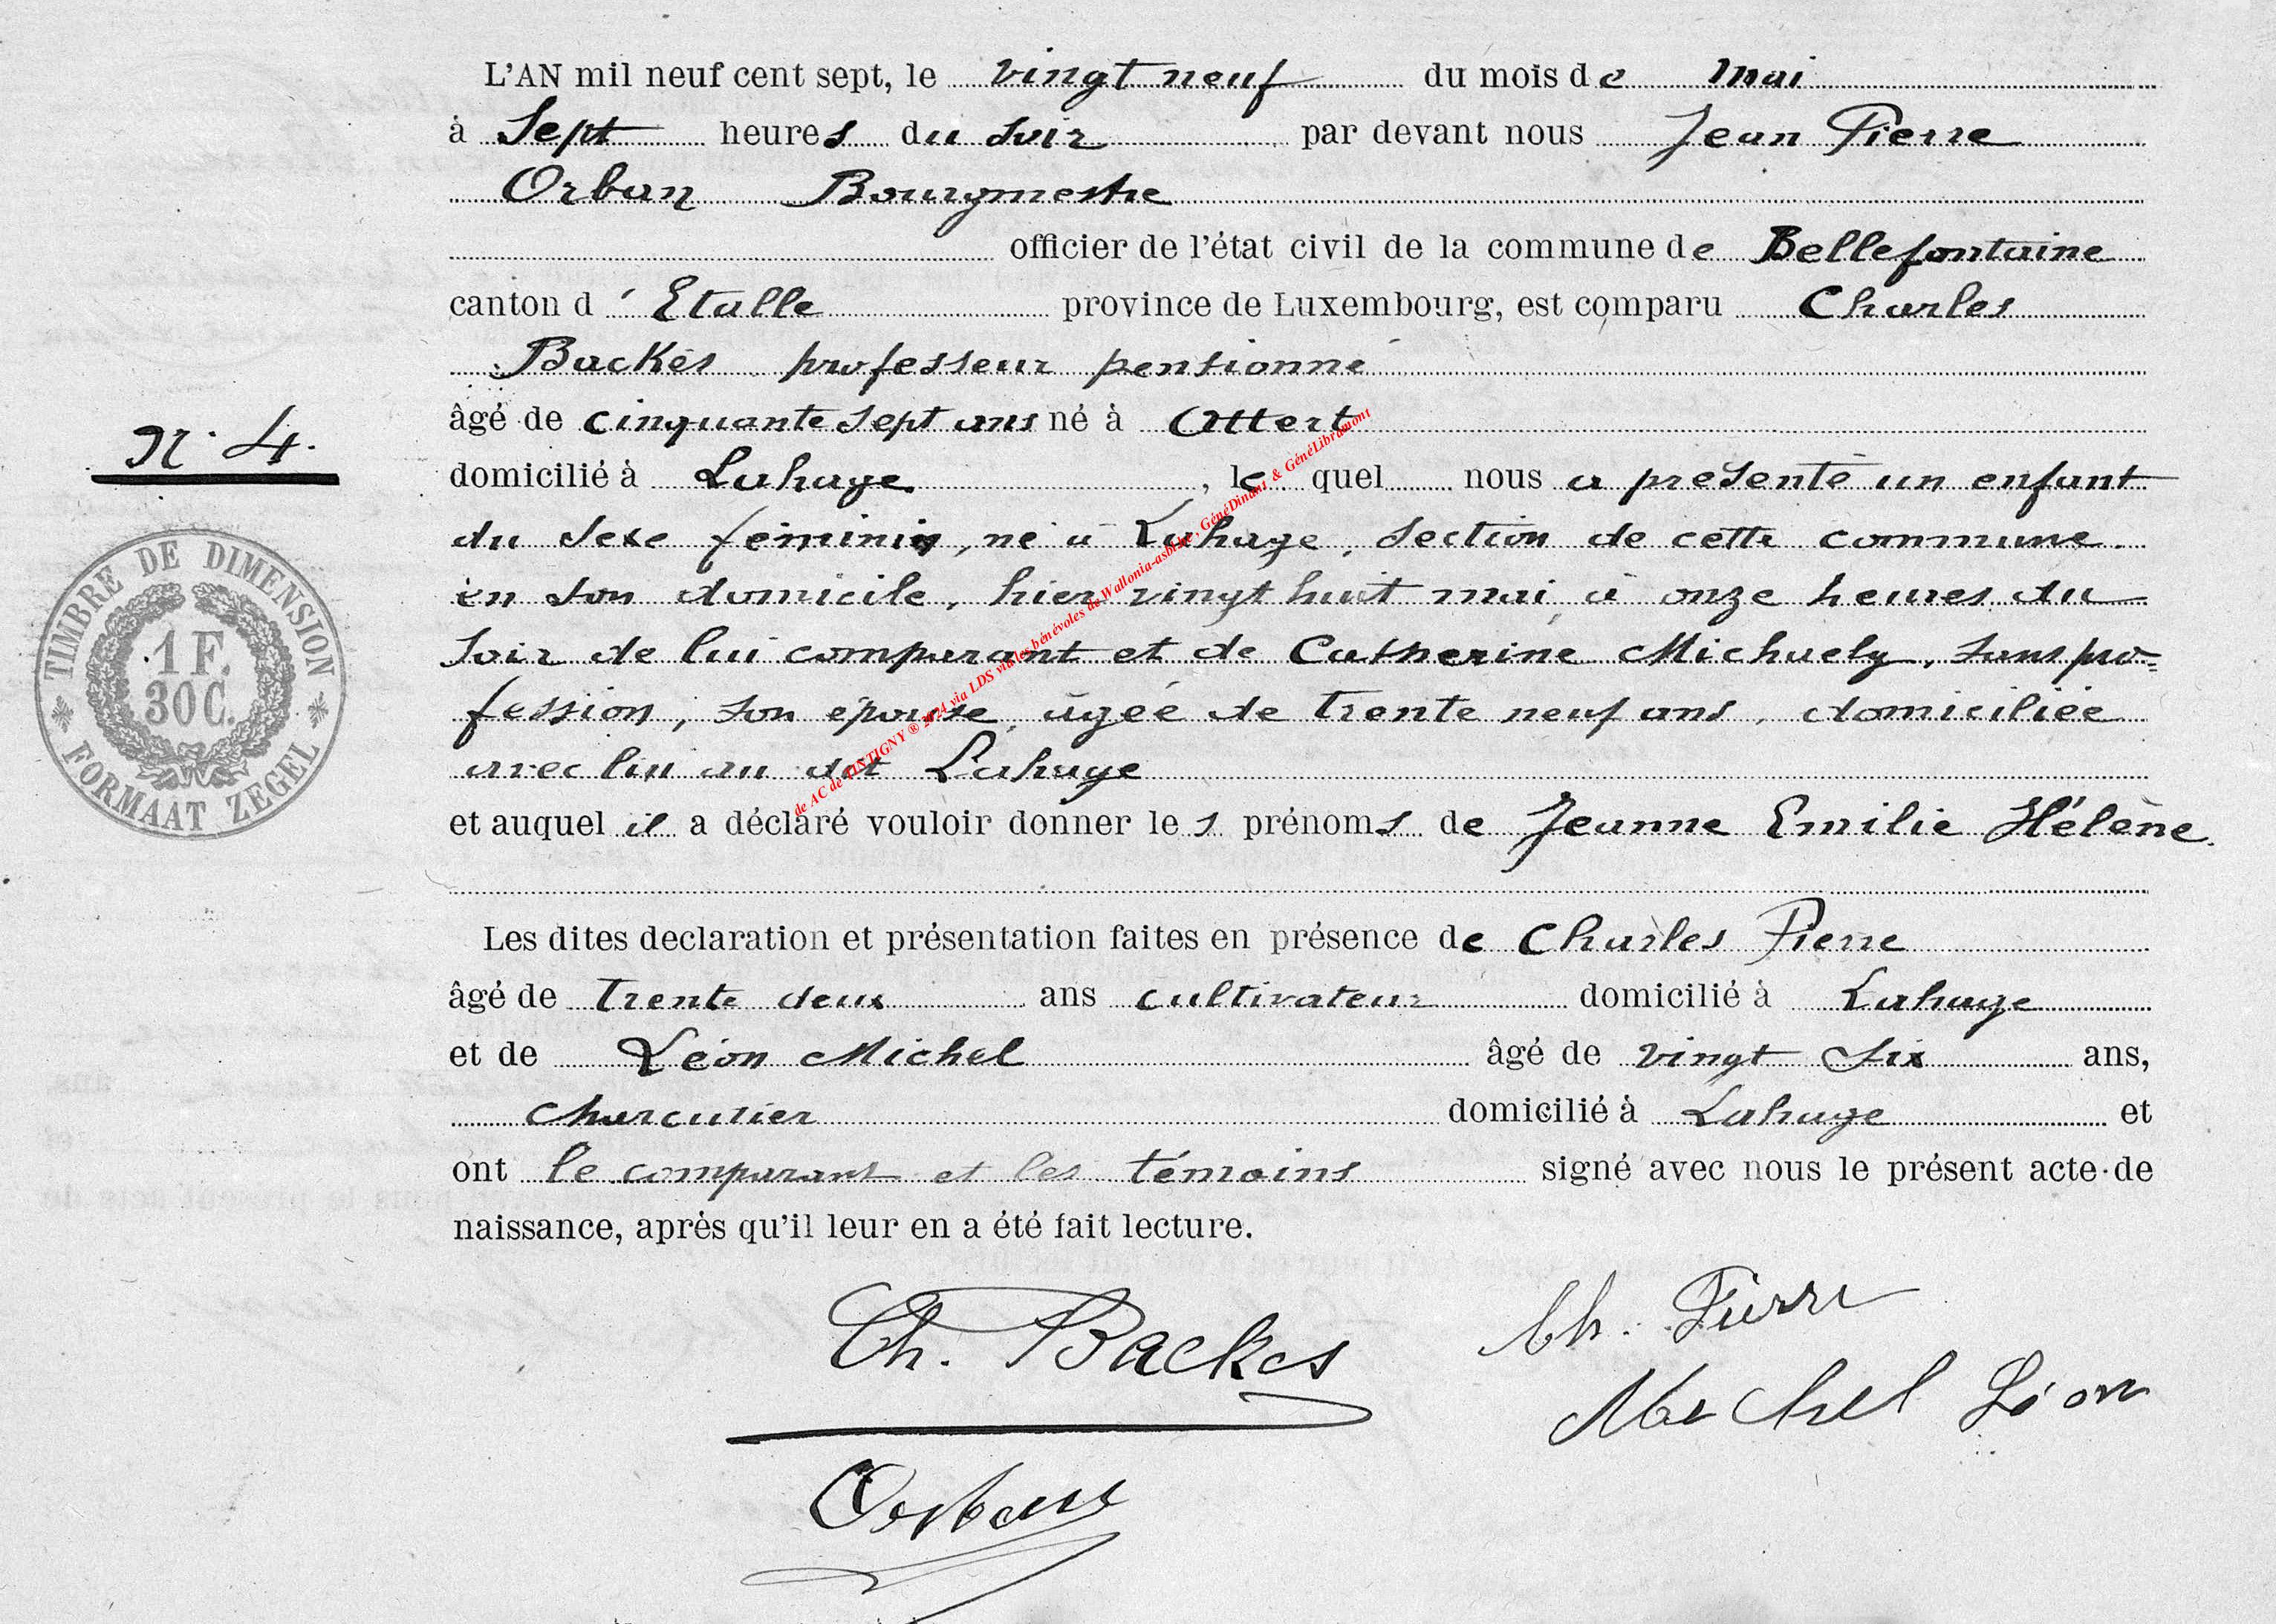 L'AN mil neuf cent sept, le vingt neuf du mois de mai
à Sept heures du soir par devant nous Jean Pierre
Orban Bourgmestre
officier de l'état civil de la commune de Bellefontaine
canton d'Etalle province de Luxembourg, est comparu Charles
Backès professeur pensionné
âgé de cinquante sept ans né à Attert
N° 4.
domicilié à Lahage, lequel nous a présenté un enfant
du sexe féminin, né à Lahage, section de cette commune
en son domicile, hier vingt huit mai à onze heures du
soir de lui comparant et de Catherine Michaely, sans pro=
fession, son épouse, âgée de trente neuf ans, domiciliée
avec lui au dit Lahage
et auquel il a déclaré vouloir donner les prénoms de Jeanne Emilie Hélène.
Les dites declaration et présentation faites en présence de Charles Pierre
âgé de trente deux ans cultivateur domicilié à Lahage
et de Léon Michel âgé de vingt six ans,
charcutier domicilié à Lahage et
ont le comparant et les témoins signé avec nous le présent acte de
naissance, après qu'il leur en a été fait lecture.
Ch. Backes
Ch. Pierre
Michel Léon
Orban
TIMBRE DE DIMENSION
1 F.
30 C.
FORMAAT ZEGEL
de AC de TINTIGNY ® 2024 via LDS via les bénévoles de Wallonia-asbl.be, GénéDinant & GénéLibramont